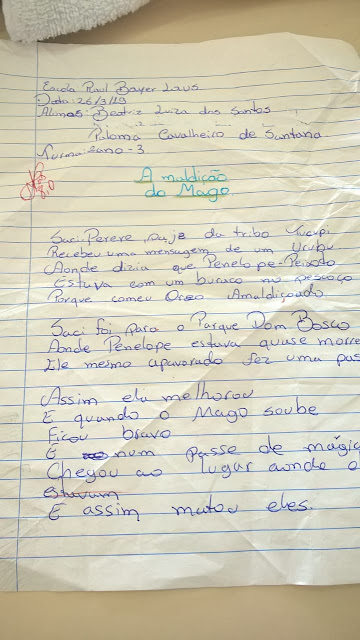 Escola Raul Bayer Laus
Data: 26/3/19
Alunas: Beatriz Luiza dos Santos
Paloma Cavalheiro de Santana
Turma: 2ano-3
A maldição
do Mago
Saci-Perere, paje da tribo
Recebeu uma mensagem de um Urubu
Aonde dizia que Penelope-Peixoto
Estava com um buraco no pescoço
Porque comeu Oreo Amaldiçoado
Saci foi para o Parque Dom Bosco
Aonde Penelope estava quase morre
Ele mesmo apavorado fez uma pas
Assim ela melhorou
E quando o Mago soube
Ficou bravo
E num passe de mágic
Chegou ao lugar aonde o
Estavam
E assim matou eles.